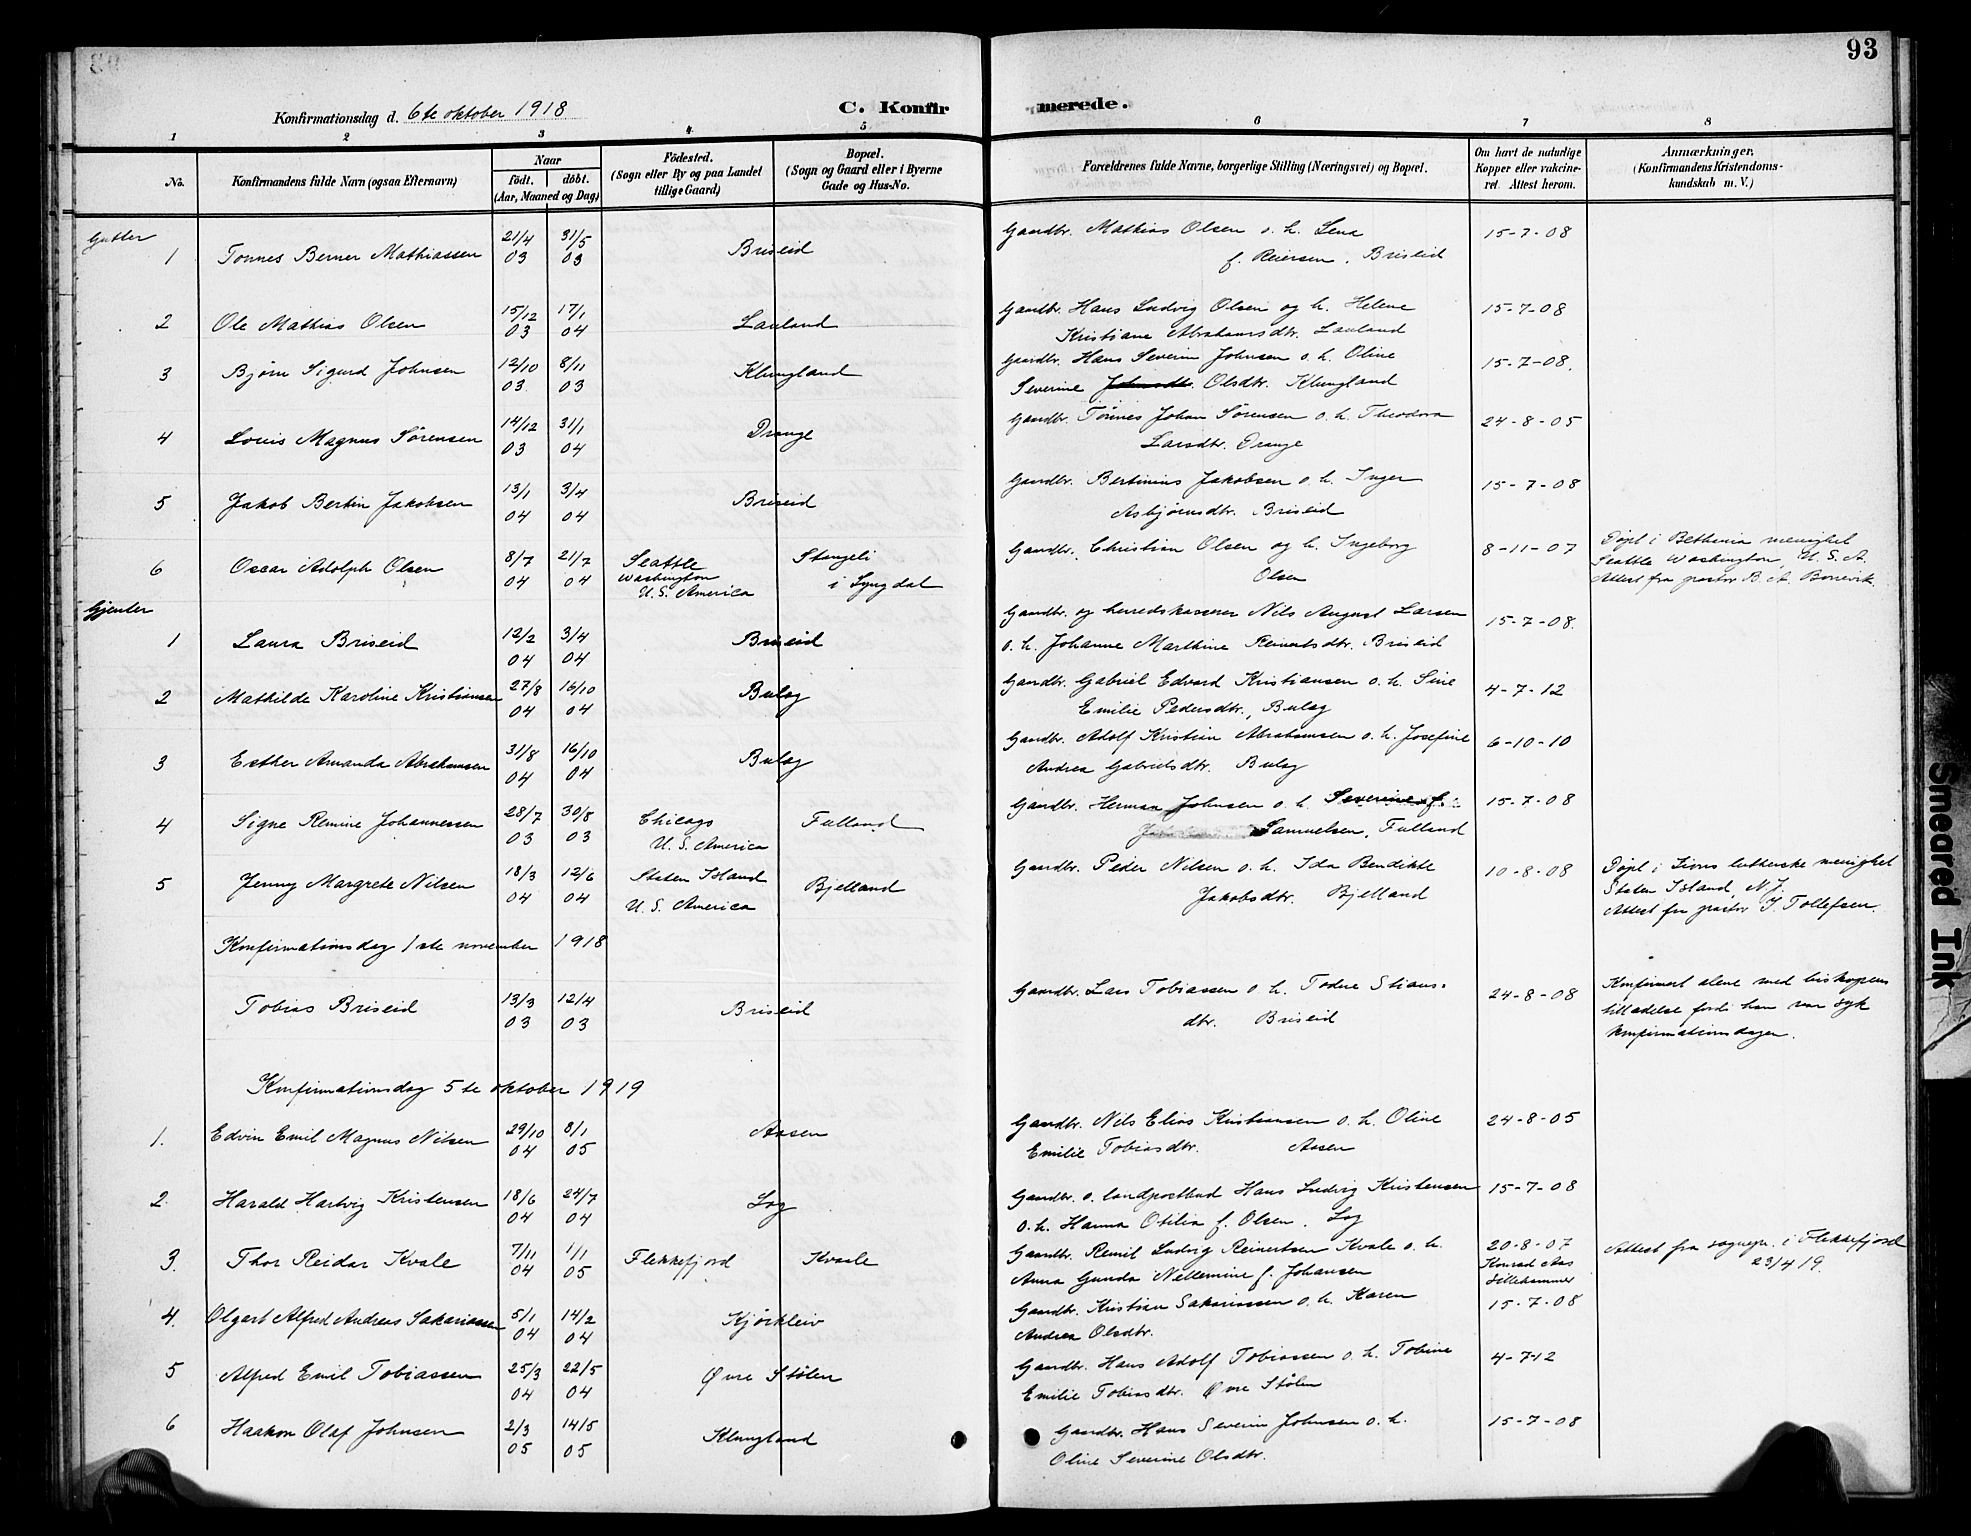 93
Konfirmationsdag d. 6te oktober 1918
C. Konfirmerede.
1 2 3 4 5 6 7 8
No.
Konfirmandens fulde Navn (ogsaa Efternavn)
Naar
födt. döbt.
(Aar, Maaned og Dag)
Födested.
(Sogn eller By og paa Landet
tillige Gaard)
Bopæl.
(Sogn og Gaard eller i Byerne
Gade og Hus-No.
Forældrenes fulde Navne, borgerlige Stilling (Næringsvei) og Bopæl.
Om havt de naturlige
Kopper eller vakcine-
ret. Attest herom.
Anmærkninger.
(Konfirmandens Kristendoms-
kundskab m. V.)
Gutter
1 Tonnes Berner Mathiassen 21/4 03 31/5 03 Briseid Gaardbr. Mathias Olsen o. h. Lena 15-7-08
f. Reiersen, Briseid
2 Ole Mathias Olsen 15/12 03 17/1 04 Lauland Gaardbr. Hans Ludvig Olsen og h. Helene 15-7-08
Kristiane Abrahamsdtr. Lauland
3 Bjørn Sigurd Johnsen 12/10 03 8/11 03 Klungland Gaardbr. Hans Severin Johnsen o. h. Oline 15-7-08.
Severine Olsdtr. Klungland
4 Louis Magnus Sørensen 14/12 03 31/1 04 Drange Gaardbr. Tønnes Johan Sørensen o. h. Theodora 24-8-05
Larsdtr. Drange
5 Jakob Bertin Jakobsen 13/1 04 3/4 04 Briseid Gaardbr. Bertinius Jakobsen o. h. Inger 15-7-08
Asbjørnsdtr. Briseid
6 Oscar Adolph Olsen 8/7 04 21/7 04 Seattle Washington U.S. America Stangeli i Lyngdal Gaardbr. Christian Olsen og h. Ingeborg Olsen 8-11-07
Døpt i Bethania menighet
Seattle Washington, U. S. A.
Attest fra pastor B. A. Borrevik.
Gjenter
1 Laura Briseid 12/2 04 3/4 04 Briseid Gaardbr. og herredskasserer Nils August Larsen 15-7-08.
o. h. Johanne Marthine Reinertsdtr. Briseid
2 Mathilde Karoline Kristiansen 27/8 04 16/10 04 Bulæg Gaardbr. Gabriel Edvard Kristiansen o. h. Sine 4-7-12
Emilie Pedersdtr., Bulæg
3 Esther Amanda Abrahamsen 31/8 04 16/10 04 Bulæg Gaardbr. Adolf Kristian Abrahamsen o. h. Josefine 6-10-10
Andrea Gabrielsdtr. Bulæg
4 Signe Remine Johannessen 28/7 03 30/8 03 Chicago U. S. America Falland Gaardbr. Herman Johnsen o. h. Severine f. 15-7-08
Samuelsen, Falland
5 Jenny Margrete Nilsen 18/3 04 12/6 04 Staten Island U. S. America Bjelland Gaardbr. Peder Nilsen o. h. Ida Bendikte 10-8-08
Jakobsdtr. Bjelland
Døpt i Zions lutherske menighet
Staten Island, N. J.
Attest fra pastor J. Tollefsen.
Konfirmationsdag 1ste november 1918
Tobias Briseid 13/3 03 12/4 03 Briseid Gaardbr. Lars Tobiassen o. h. Todne Stians-
dtr. Briseid 24-8-08
Konfirmert alene med biskopens
tilladelse fordi han var syk
konfirmationsdagen.
Konfirmationsdag 5te oktober 1919
1. Edvin Emil Magnus Nilsen 29/10 04 8/1 05 Aasen Gaardbr. Nils Elias Kristiansen o. h. Oline 24-8-05
Emilie Tobiasdtr. Aasen
2. Harald Hartvig Kristensen 18/6 04 24/7 04 Log Gaardbr. o. landpostbud Hans Ludvig Kristensen 15-7-08
o. h. Hanna Otilia f. Olsen. Log
3. Thor Reidar Kvale 7/11 04 1/1 05 Flekkefjord Kvaale Gaardbr. Remil Ludvig Reinertsen Kvale o. h. 20-8-07
Anna Gunda Nellemine f. Johansen Konrad Aas Lillehammer
Attest fra sognepr. i Flekkefjord
23/4 19.
4. Olgart Alfred Andreas Sakariassen 5/1 04 14/2 04 Kjørkleiv Gaardbr. Kristian Sakariassen o. h. Karen 15-7-08
Andrea Olsdtr.
5 Alfred Emil Tobiassen 25/3 04 22/5 04 Øvre Stølen Gaardbr. Hans Adolf Tobiassen o. h. Tobine 4-7-12
Emilie Tobiasdtr. Øvre Stølen
6 Haakon Olaf Johnsen 2/3 05 14/5 05 Klungland Gaardbr. Hans Severin Johnsen o. h. 15-7-08
Oline Severine Olsdtr.
Smeared Ink